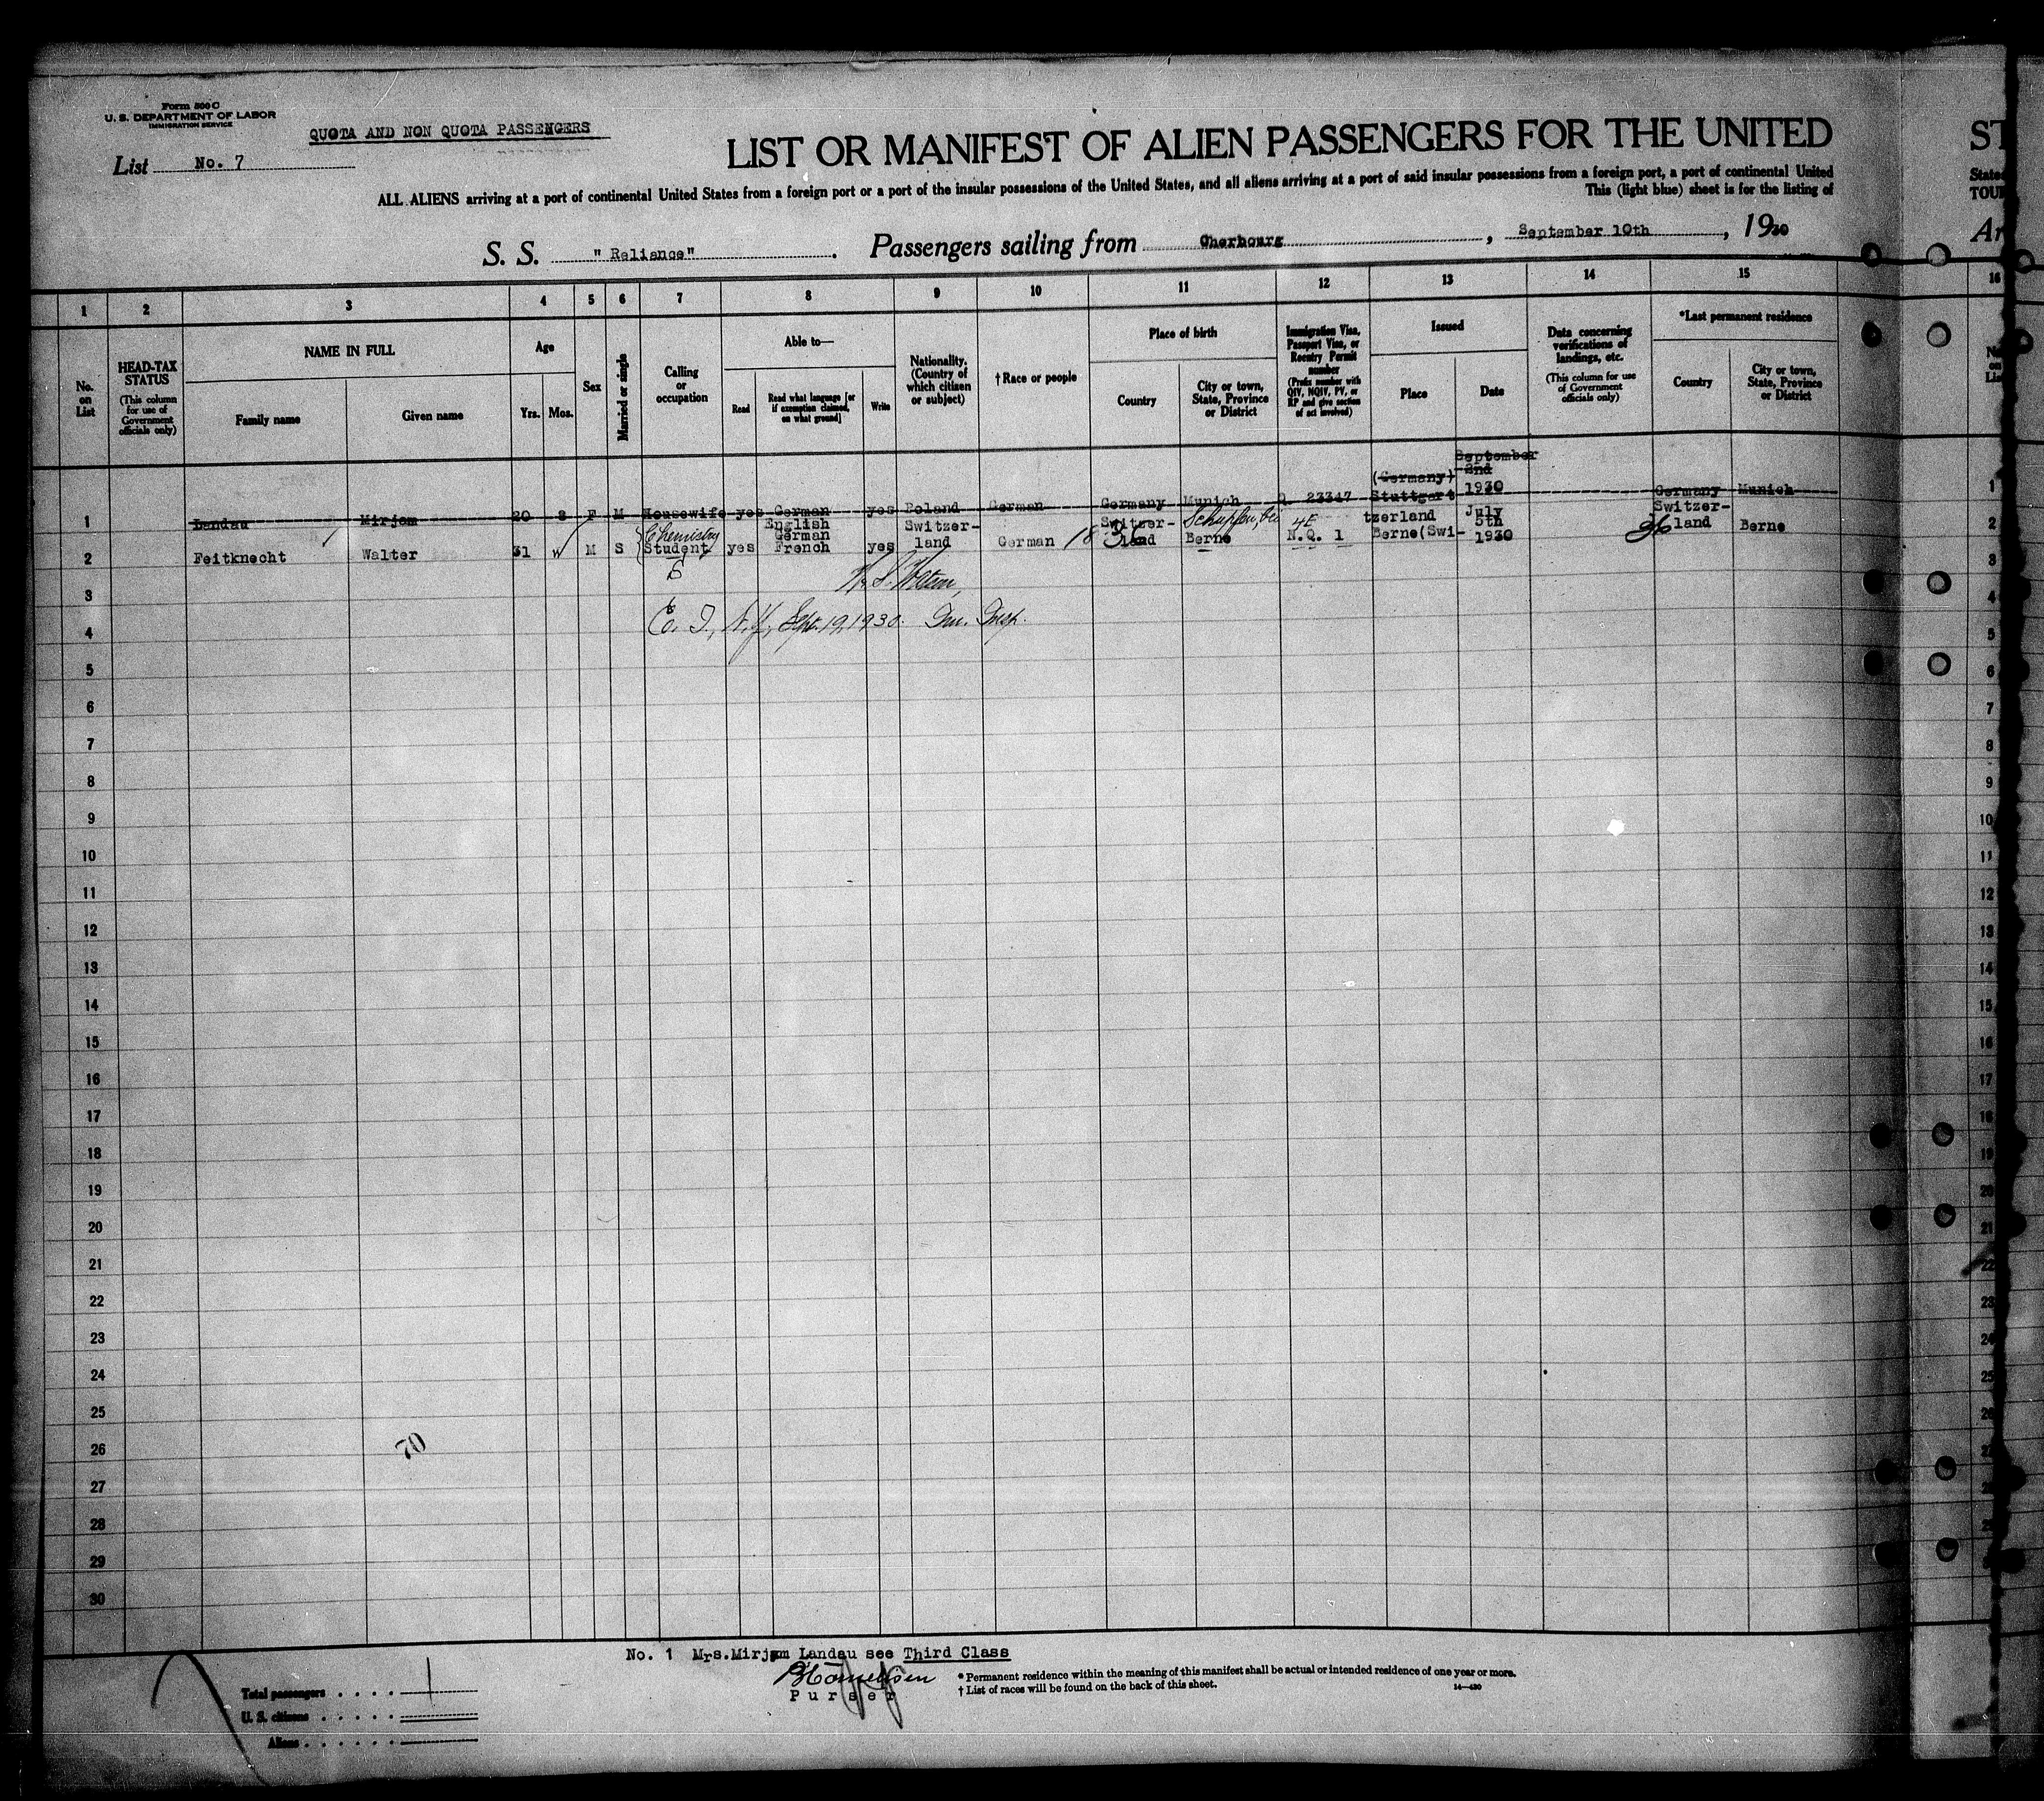 Form 500 C
U. S. DEPARTMENT OF LABOR
IMMIGRATION SERVICE
QUOTA AND NON QUOTA PASSENGERS
List No. 7
LIST OR MANIFEST OF ALIEN PASSENGERS FOR THE UNITED
ST
ALL ALIENS arriving at a port of continental United States from a foreign port or a port of the insular possessions of the United States, and all aliens arriving at a port of said insular possessions from a foreign port, a port of continental United
States
This (light blue) sheet is for the listing of
TOUR
S. S. "Reliance". Passengers sailing from Cherbourg, September 10th, 1930
Ar
1 2 3 4 5 6 7 8 9 10 11 12 13 14 15 16
No. on List
HEAD-TAX STATUS (This column for use of Government officials only)
NAME IN FULL
Family name
Given name
Age
Yrs.
Mos.
Sex
Married or single
Calling or occupation
Able to—
Read
Read what language [or if exemption claimed, on what ground]
Write
Nationality. (Country of which citizen or subject)
† Race or people
Place of birth
Country
City or town, State, Province or District
Immigration Visa, Passport Visa, or Reentry Permit number (Prefix number with QIV, NQIV, PV, or RP and give section of act involved)
Issued
Place
Date
Data concerning verifications of landings, etc. (This column for use of Government officials only)
*Last permanent residence
Country
City or town, State, Province or District
1 Landau Mirjam 20 8 F M Housewife yes German yes Poland German Germany Munich Q 23347 (Germany) Stuttgart September 2nd 1930 Germany Munich
2 Feitknecht Walter 31 M S Chemistry Student yes English German French yes Switzerland German Switzerland Berne 4E N.Q. 1 Berne(Switzerland July 5th 1930 Switzerland Berne
3
4 E. I., N.Y., Sept. 19, 1930. Im. Insp.
5
6
7
8
9
10
11
12
13
14
15
16
17
18
19
20
21
22
23
24
25
26 70
27
28
29
30
No. 1 Mrs.Mirjam Landau see Third Class
Purser
Total passengers . . . . 1
U. S. citizens . . . . .
Aliens . . . . . .
* Permanent residence within the meaning of this manifest shall be actual or intended residence of one year or more.
† List of races will be found on the back of this sheet.
14—430